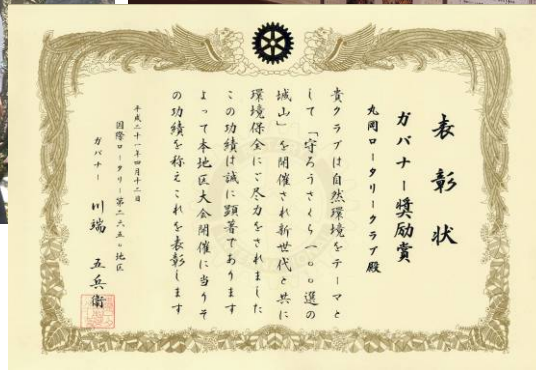 表彰状
ガバナー奨励賞
丸岡ロータリークラブ殿
貴クラブは自然環境をテーマと
して「守ろうさくら一〇〇選の
城山」を開催され新世代と共に
環境保全にご尽力をされました
この功績は誠に顕著であります
よって本地区大会開催に当りそ
の功績を称えこれを表彰します
平成二十一年四月十二日
国際ロータリー第二六五〇地区
ガバナー 川端 五兵衞